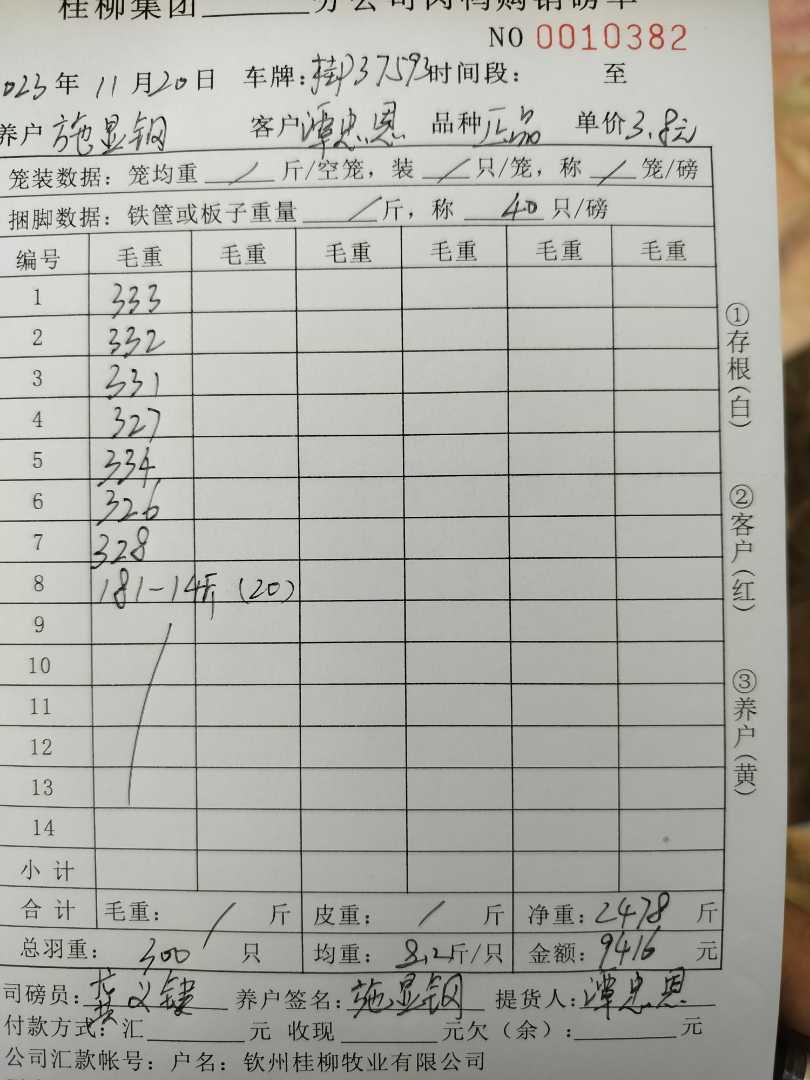 桂柳集团______分公司肉鸭购销磅单
NO 0010382
2023年 11月20日 车牌:桂P37593 时间段: 至
养户 施显钢 客户 潭忠恩 品种 正品 单价 3.8元
笼装数据: 笼均重 / 斤/空笼, 装 / 只/笼, 称 / 笼/磅
捆脚数据: 铁筐或板子重量 / 斤, 称 40 只/磅
编号 毛重 毛重 毛重 毛重 毛重 毛重
1 333
2 332
3 331
4 327
5 334
6 326
7 328
8 181-14斤 (20)
9
10
11
12
13
14
小计
合计 毛重: / 斤 皮重: / 斤 净重: 2478 斤
总羽重: 300 只 均重: 8.2斤/只 金额: 9416 元
司磅员: 养户签名: 施显钢 提货人: 潭忠恩
付款方式: 汇______元 收现______元欠(余):______元
公司汇款帐号: 户名: 钦州桂柳牧业有限公司
①存根(白)
②客户(红)
③养户(黄)